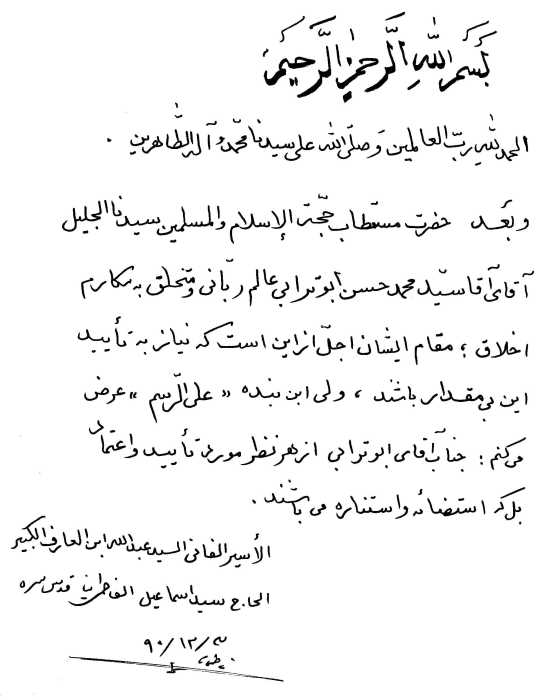 بسم الله الرحمن الرحیم
الحمد لله رب العالمین و صلّی الله علی سیدنا محمّد و آله الطّاهرین .
و بعد حضرت مستطاب حجّة الإسلام والمسلمین سیدنا الجلیل
آقای آقا سیّد محمد حسن ابوترابی عالم ربّانی و متخلق به مکارم
اخلاق ؛ مقام ایشان اجلّ از این است که نیاز به تأیید
این بی مقدار باشند ، ولی این بنده « علی الرّسم » عرض
می‌کنم : جناب آقای ابوترابی از هر نظر مورد تأیید و اعتماد
بل که استضائه و استناره می باشند .
الأسیر الفانی السید عبدالله ابن العارف الکبیر
الحاج سید اسماعیل الفاطمی قدس سره
۹۰/۱۲/۳